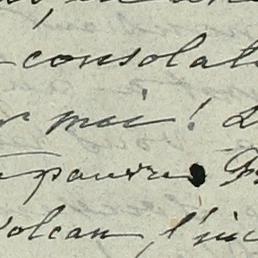 consolat
moi !
pauvre
Volcan, l'inc